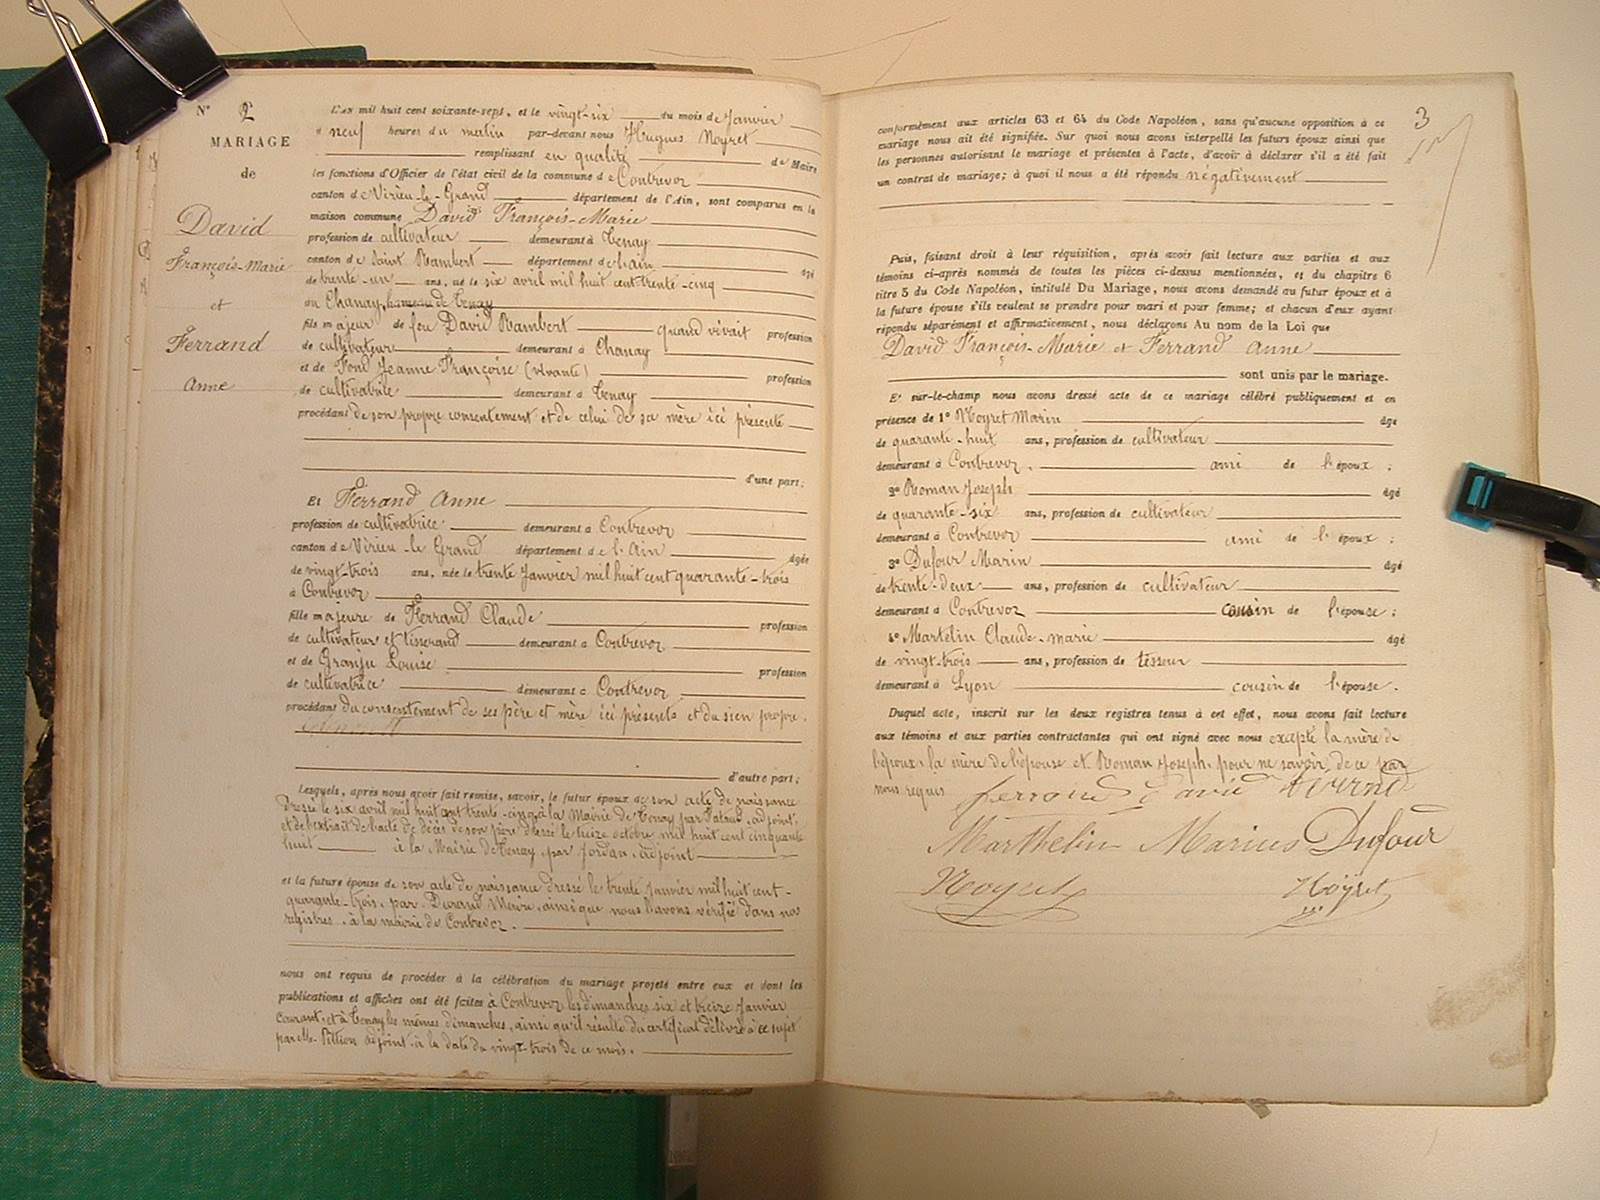 N° 2
MARIAGE
de
David
François-Marie
et
Ferrand
Anne
L'an mil huit cent soixante-sept, et le vingt-six du mois de Janvier
à neuf heures du matin par-devant nous Hugues Noyret
remplissant en qualité de Maire
les fonctions d'Officier de l'état civil de la commune de Contrevoz
canton de Virieu-le-Grand département de l'Ain, sont comparus en la
maison commune David François-Marie
profession de cultivateur demeurant à Tenay
canton de Saint Rambert département de l'ain âgé
de trente-un ans, né le six avril mil huit cent trente-cinq
au Chanay, hameau de Tenay
fils majeur de feu David Rambert quand vivait profession
de cultivateur demeurant à Chanay
et de Font Jeanne Françoise (vivante) profession
de cultivatrice demeurant à Tenay
procédant de son propre consentement et de celui de sa mère ici présente
d'une part;
Et Ferrand Anne
profession de cultivatrice demeurant à Contrevoz
canton de Virieu-le Grand département de l'Ain âgée
de vingt-trois ans, née le trente Janvier mil huit cent quarante-trois
à Contrevoz
fille majeure de Ferrand Claude profession
de cultivateur et tisserand demeurant à Contrevoz
et de Granju Louise profession
de cultivatrice demeurant à Contrevoz
procédant du consentement de ses père et mère ici présents et du sien propre.
d'autre part;
Lesquels, après nous avoir fait remise, savoir, le futur époux de son acte de naissance
dressé le six avril mil huit cent trente-cinq à la Mairie de Tenay par adjoint,
et de l'extrait de l'acte de décès de son père dressé le treize octobre mil huit cent cinquante
huit à la Mairie de Tenay, par Jordan, adjoint
et la future épouse de son acte de naissance dressé le trente Janvier mil huit cent-
quarante-trois, par Durand Maire, ainsi que nous l'avons vérifié dans nos
registres, à la mairie de Contrevoz.
nous ont requis de procéder à la célébration du mariage projeté entre eux et dont les
publications et affiches ont été faites à Contrevoz les dimanches six et treize Janvier
courant, et à Tenay les mêmes dimanches, ainsi qu'il résulte du certificat délivré à ce sujet
par Mr. Pittion adjoint à la date du vingt-trois de ce mois.
3
conformément aux articles 63 et 64 du Code Napoléon, sans qu'aucune opposition à ce
mariage nous ait été signifiée. Sur quoi nous avons interpellé les futurs époux ainsi que
les personnes autorisant le mariage et présentes à l'acte, d'avoir à déclarer s'il a été fait
un contrat de mariage; à quoi il nous a été répondu négativement
Puis, faisant droit à leur réquisition, après avoir fait lecture aux parties et aux
témoins ci-après nommés de toutes les pièces ci-dessus mentionnées, et du chapitre 6
titre 5 du Code Napoléon, intitulé Du Mariage, nous avons demandé au futur époux et à
la future épouse s'ils veulent se prendre pour mari et pour femme; et chacun d'eux ayant
répondu séparément et affirmativement, nous déclarons Au nom de la Loi que
David François-Marie et Ferrand Anne
sont unis par le mariage.
Et sur-le-champ nous avons dressé acte de ce mariage célébré publiquement et en
présence de 1° Noyret Marin âgé
de quarante-huit ans, profession de cultivateur
demeurant à Contrevoz, ami de l'époux;
2° Roman Joseph âgé
de quarante-six ans, profession de cultivateur
demeurant à Contrevoz ami de l'époux;
3° Dufour Marin âgé
de trente-deux ans, profession de cultivateur
demeurant à Contrevoz cousin de l'épouse;
4° Martelin Claude-marie âgé
de vingt-trois ans, profession de tisseur
demeurant à Lyon cousin de l'épouse.
Duquel acte, inscrit sur les deux registres tenus à cet effet, nous avons fait lecture
aux témoins et aux parties contractantes qui ont signé avec nous excepté la mère de
l'époux, la mère de l'épouse et Roman Joseph, pour ne savoir, de ce par
nous requis
david
Marthelin Marius Dufour
Noyret Noÿret